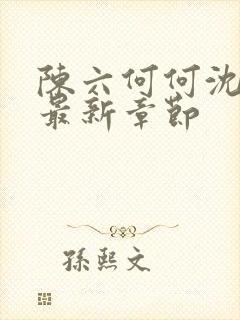 陳六何何沈
最新章節
孫熙文